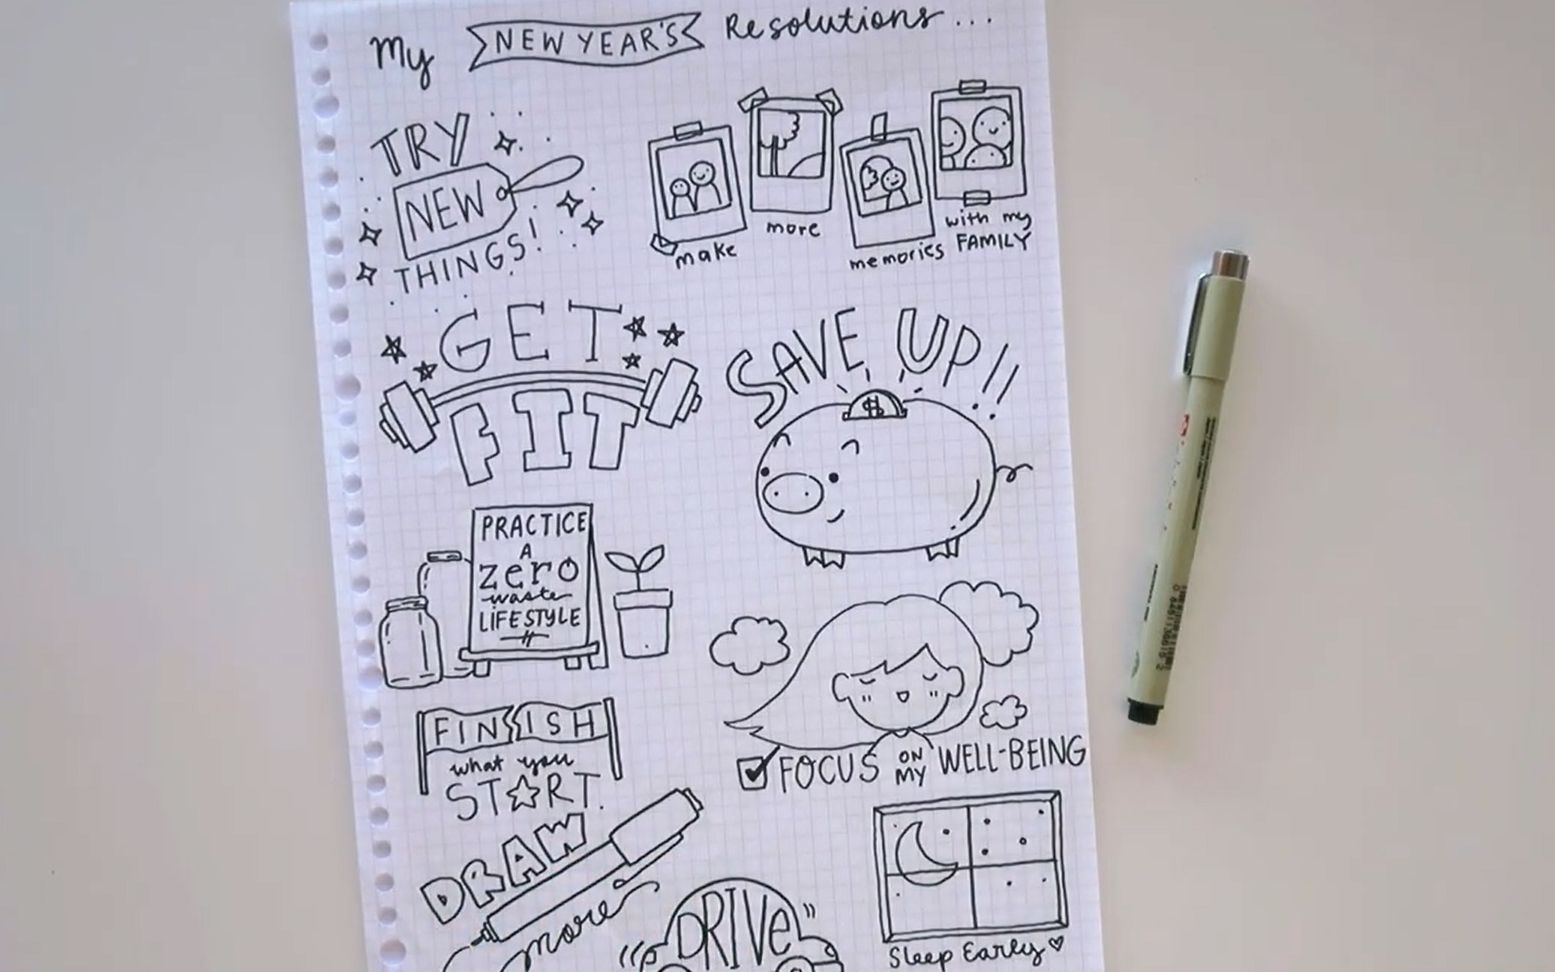 My NEW YEAR'S Resolutions...
TRY
NEW
THINGS!
make
more
memories
with my
FAMILY
GET
FIT
SAVE UP!!
$
PRACTICE
A
zero
waste
LIFESTYLE
FOCUS ON MY WELL-BEING
FINISH
what you
START.
DRAW
more
DRIVE
Sleep Early